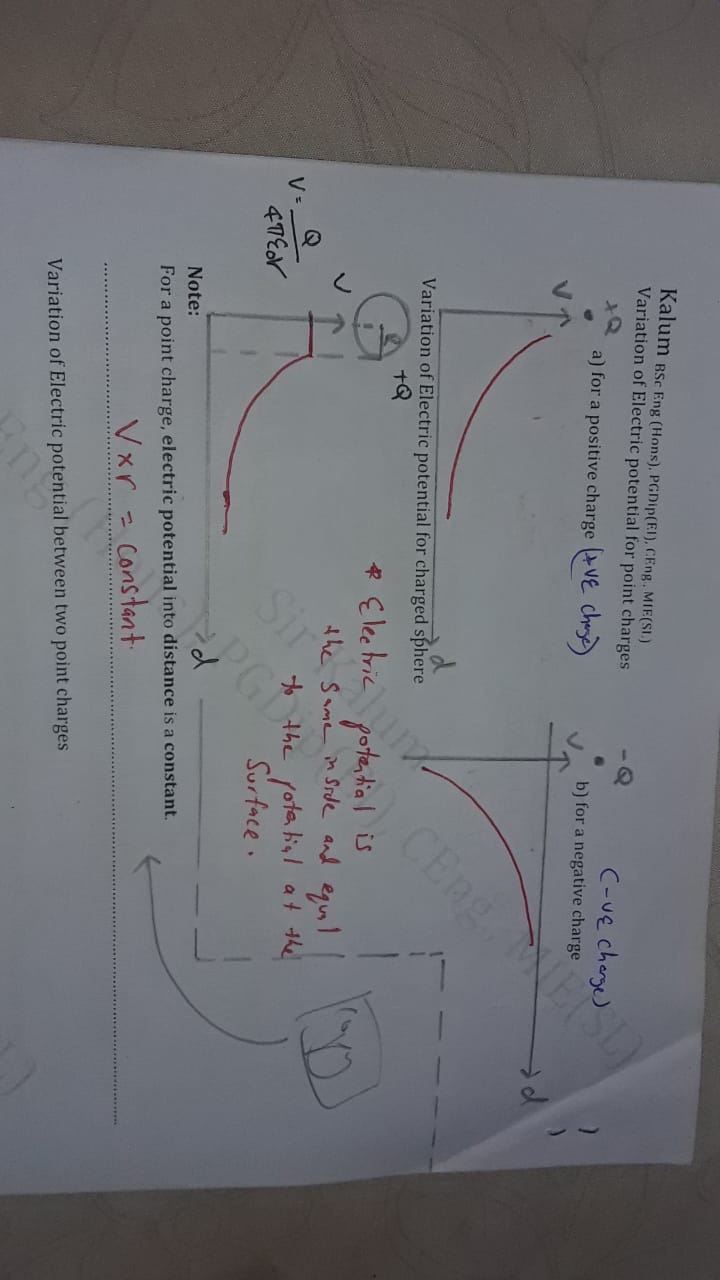 Kalum BSc Eng (Hons), PGDip(EI), CEng., MIE(SL)
Variation of Electric potential for point charges
+Q
a) for a positive charge (+ve charge)
V
d
-Q
(-ve charge)
b) for a negative charge
V
d
Variation of Electric potential for charged sphere
R
+Q
V
V = Q / 4πε0r
d
* Electric potential is
the same inside and equal
to the potential at the
Surface.
Note:
For a point charge, electric potential into distance is a constant.
V×r = constant.
Variation of Electric potential between two point charges
Sir Kalum
PGDip(EI), CEng., MIE(SL)